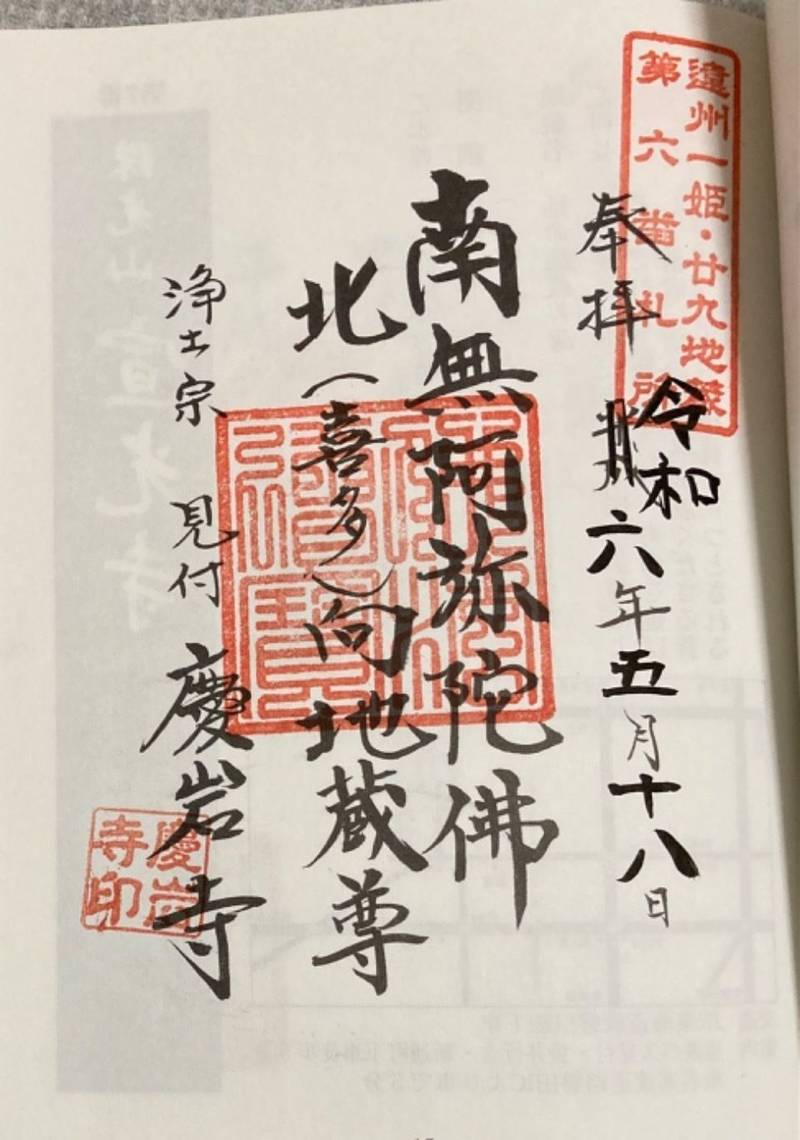 遠州一姫・廿九地蔵
第六番札所
奉拝
令和
六年五月十八日
南無阿弥陀佛
北（喜多）向地蔵尊
浄土宗 見付 慶岩寺
慶岩
寺印